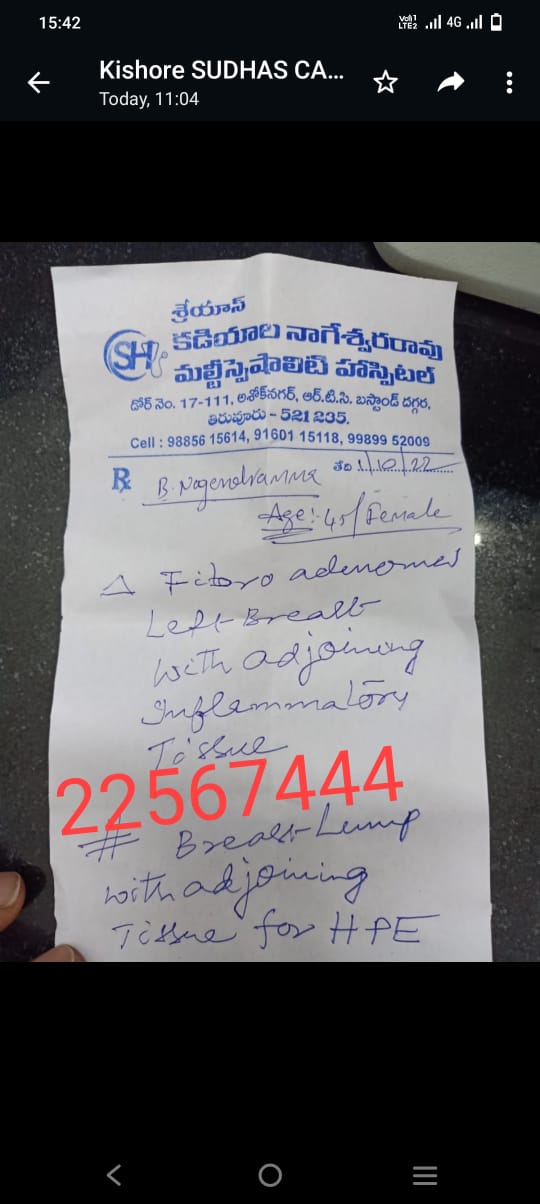 15:42
Vo)) 1
LTE2
4G
Kishore SUDHAS CA...
Today, 11:04
శ్రేయాన్
SH
కడియాల నాగేశ్వరరావు
మల్టీస్పెషాలిటి హాస్పిటల్
డోర్ నెం. 17-111, అశోక్‌నగర్, ఆర్.టి.సి. బస్టాండ్ దగ్గర,
తిరువూరు - 521 235.
Cell : 98856 15614, 91601 15118, 99899 52009
Rx B. Nagendramma తేది 1/10/22
Age:- 45/Female
△ Fibro adenomas
Left Breast
with adjoining
Inflammatory
Tissue
22567444
# Breast Lump
with adjoining
Tissue for HPE